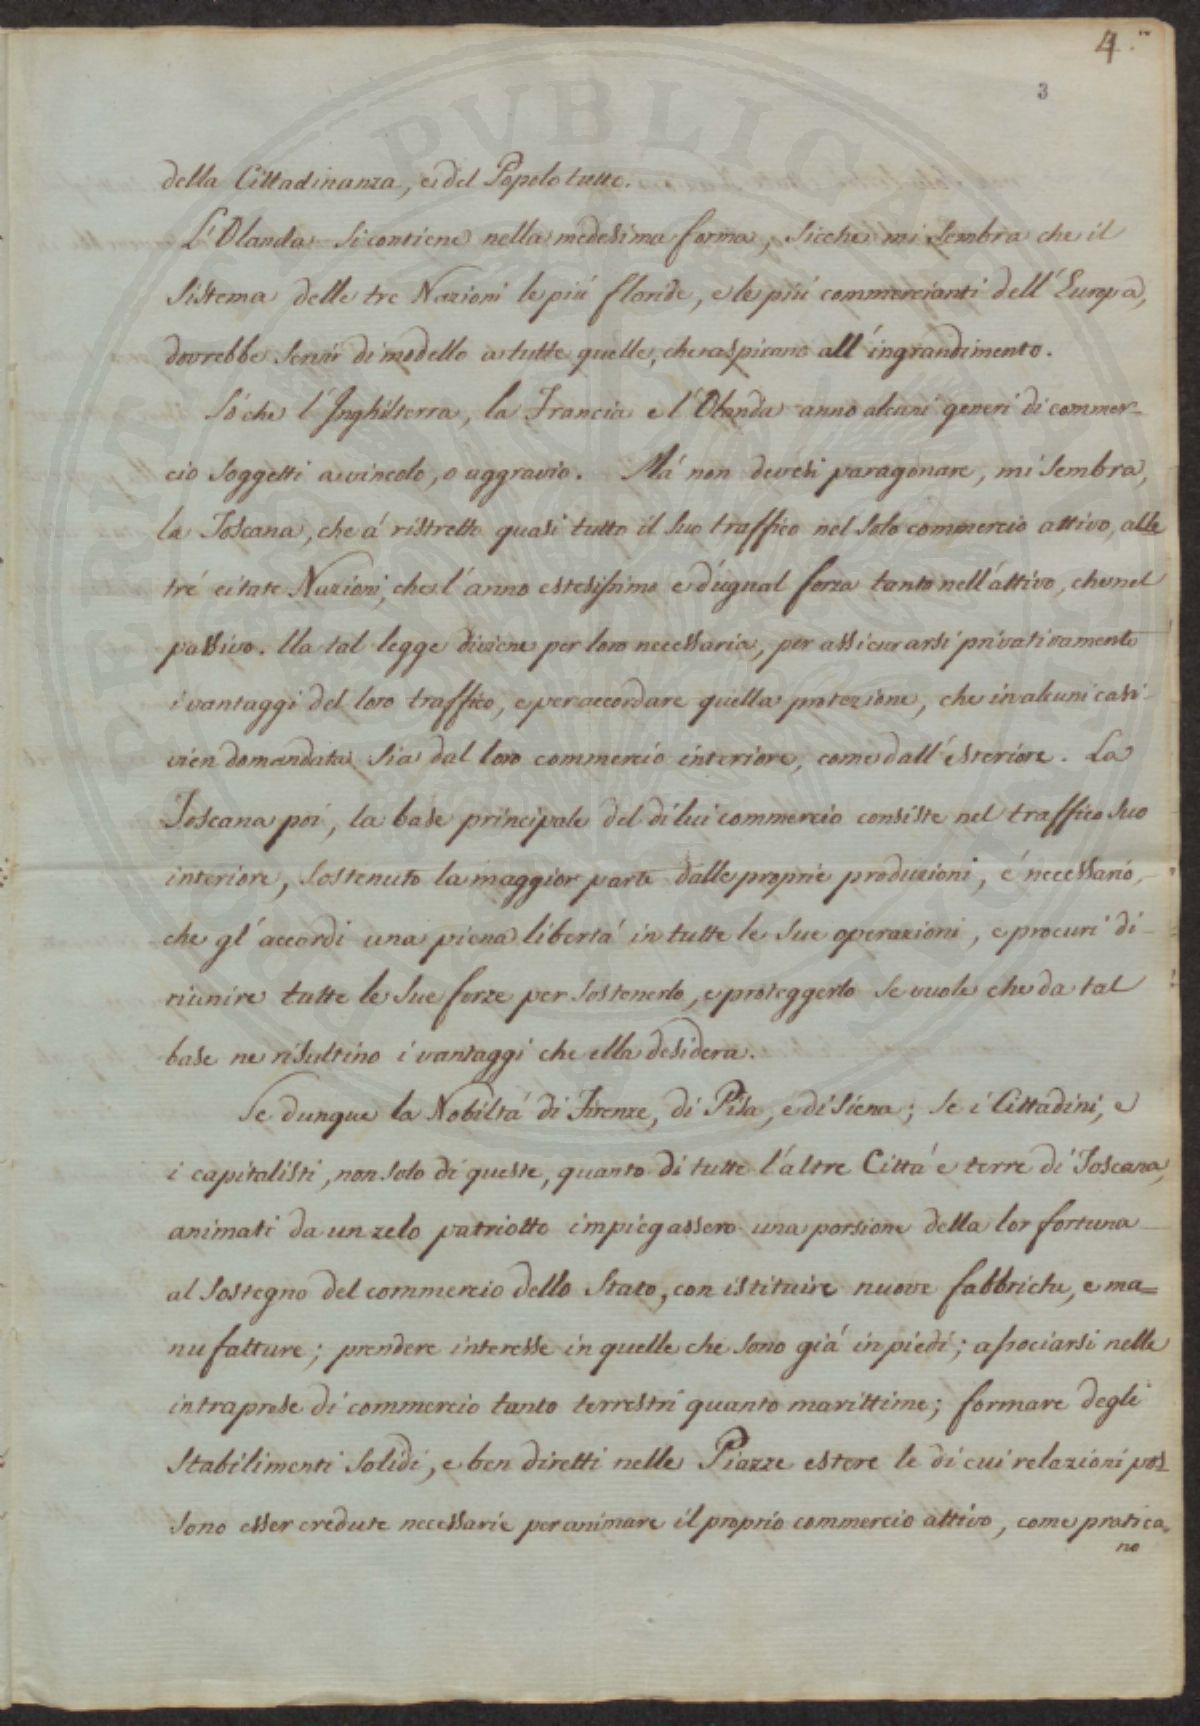 4.
3
della Cittadinanza, e del Popolo tutto.
L'Olanda si contiene nella medesima forma, sicche mi sembra che il
sistema delle tre Nazioni le piú floride, e le piú commercianti dell'Europa,
dovrebbe servir di modello a tutte quelle, che aspirano all'ingrandimento.
Só che l'Inghilterra, la Francia e l'Olanda anno alcuni generi di commer-
cio soggetti a vincolo, o aggravio. Má non devesi paragonare, mi sembra,
la Toscana, che á ristretto quasi tutto il suo traffico nel solo commercio attivo, alle
tré citate Nazioni, che l'anno estesissimo e d'ugual forza tanto nell'attivo, che nel
passivo. Una tal legge diviene per loro necessaria, per assicurarsi privativamente
i vantaggi del loro traffico, e per accordare quella protezione, che in alcuni casi
vien domandata sia dal loro commercio interiore, come dall'esteriore. La
Toscana poi, la base principale del di lui commercio consiste nel traffico suo
interiore, sostenuto la maggior parte dalle proprie produzioni, é necessario,
che gl'accordi una piena libertá in tutte le sue operazioni, e procuri di
riunire tutte le sue forze per sostenerlo, e proteggerlo se vuole che da tal
base ne risultino i vantaggi che ella desidera.
Se dunque la Nobiltá di Firenze, di Pisa, e di Siena; se i Cittadini, e
i capitalisti, non solo di queste, quanto di tutte l'altre Cittá e terre di Toscana,
animati da un zelo patriotto impiegassero una porsione della lor fortuna
al sostegno del commercio dello Stato, con istituire nuove fabbriche, e ma=
nufatture; prendere interesse in quelle che sono giá in piedi; associarsi nelle
intraprese di commercio tanto terrestri quanto marittime; formare degli
stabilimenti solidi, e ben diretti nelle Piazze estere le di cui relazioni pos-
sono esser credute necessarie per animare il proprio commercio attivo, come pratica-
no
PUBLICA